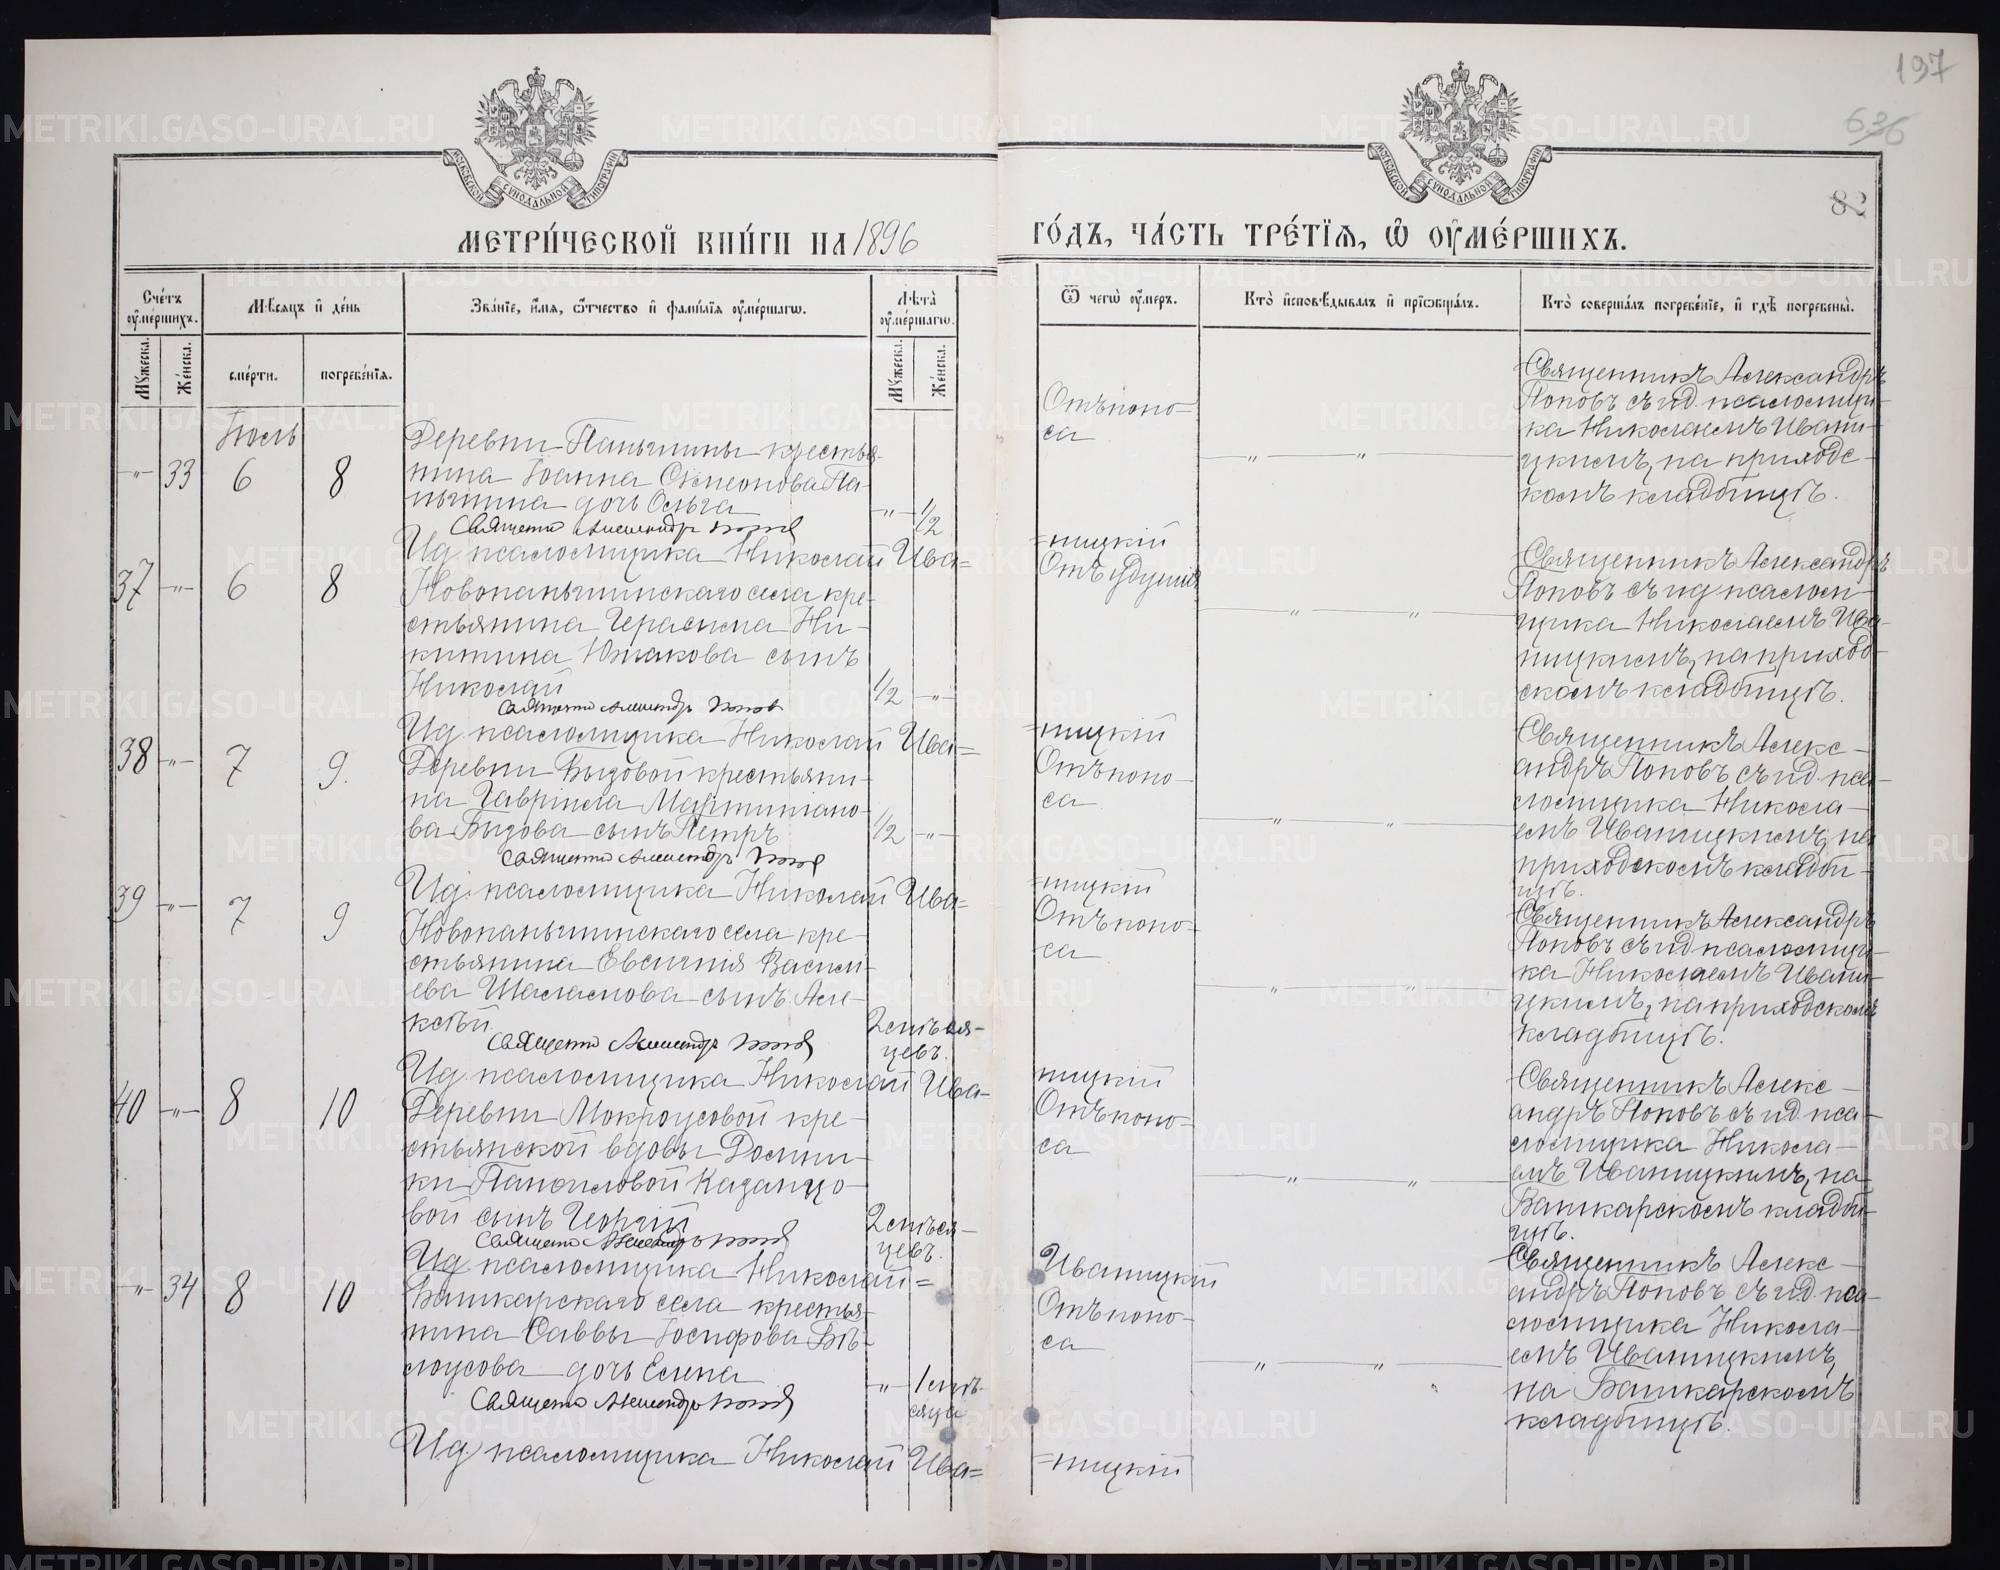 197
636
82
МОСКОВСКОЙ СѴНОДАЛЬНОЙ ТИПОГРАФІИ
МОСКОВСКОЙ СѴНОДАЛЬНОЙ ТИПОГРАФІИ
МЕТРИ́ЧЕСКОЙ КНИ́ГИ НА 1896
ГО́ДЪ, ЧА́СТЬ ТРЕ́ТІѦ, Ѿ ОУМЕ́РШИХЪ.
Сче́тъ оуме́ршихъ.
Мѣ́сяцъ и де́нь
Зва́нїе, и́мѧ, ѻ́тчество и фами́лїѧ оуме́ршагѡ.
Лѣ́та оуме́ршагѡ.
Ѿ чегѡ̀ оу́меръ.
Кто̀ и́сповѣ́дывалъ и прїѡбща́лъ.
Кто̀ соверша́лъ погребе́нїе, и гдѣ̀ погребены̀.
Му́жеска.
Же́нска.
сме́рти.
погребе́нїѧ.
Му́жеска.
Же́нска.
Іюль
-"- 33 6 8
Деревни Паньшины крестья-
нина Іоанна Симеонова Па-
ньшина дочь Ольга
-"- 1/2
Отъ поно-
са
" "
Священникъ Александръ
Поповъ съ и.д. псаломщи-
ка Николаемъ Ивани-
цкимъ, на приходс-
комъ кладбищѣ.
Священн Александръ Поповъ
Ид. псаломщика Николай Ива=
=ницкій
37 -"- 6 8
Новопаньшинскаго села кре-
стьянина Герасима Ни-
китина Южакова сынъ
Николай
1/2 -"-
Отъ удушія
" "
Священникъ Александръ
Поповъ съ ид псалом-
щика Николаемъ Ива-
ницкимъ, на приход-
скомъ кладбищѣ.
Священн Александръ Поповъ
Ид. псаломщика Николай Ива=
=ницкій
38 -"- 7 9.
Деревни Бызовой крестьяни-
на Гавріила Мартиніано-
ва Бызова сынъ Петръ
1/2 -"-
Отъ поно-
са
" "
Священникъ Алекс-
андръ Поповъ съ и.д. пса-
ломщика Никола-
емъ Иваницкимъ, на
приходскомъ кладби-
щѣ.
Священн Александръ Поповъ
Ид. псаломщика Николай Ива=
=ницкій
39 -"- 7 9
Новопаньшинскаго села кре-
стьянина Евгенія Василь-
ева Шаламова сынъ Але-
ксѣй
2 мѣся-
цевъ.
Отъ поно-
са
" "
Священникъ Александръ
Поповъ съ ид псаломщи-
ка Николаемъ Ивани-
цкимъ, на приходскомъ
кладбищѣ.
Священн Александръ Поповъ
Ид. псаломщика Николай Ива-
ницкій
40 -"- 8 10
Деревни Мокроусовой кре-
стьянской вдовы Домни-
ки Панфиловой Казанцо-
вой сынъ Георгій
2 мѣся-
цевъ.
Отъ поно-
са
" "
Священникъ Алекс-
андръ Поповъ съ ид. пса-
ломщика Никола-
емъ Иваницкимъ, на
Башкарскомъ кладби-
щѣ.
Священн Александръ Поповъ
Ид псаломщика Николай =
Иваницкій
-"- 34 8 10
Башкарскаго села крестья-
нина Саввы Іосифова Бѣ-
лоусова дочь Елена
-"- 1 мѣ-
сяца
Отъ поно-
са
" "
Священникъ Алекс-
андръ Поповъ съ ид. пса-
ломщика Никола-
емъ Иваницкимъ,
на Башкарскомъ
кладбищѣ.
Священн Александръ Поповъ
Ид псаломщика Николай Ива=
=ницкій
METRIKI.GASO-URAL.RU